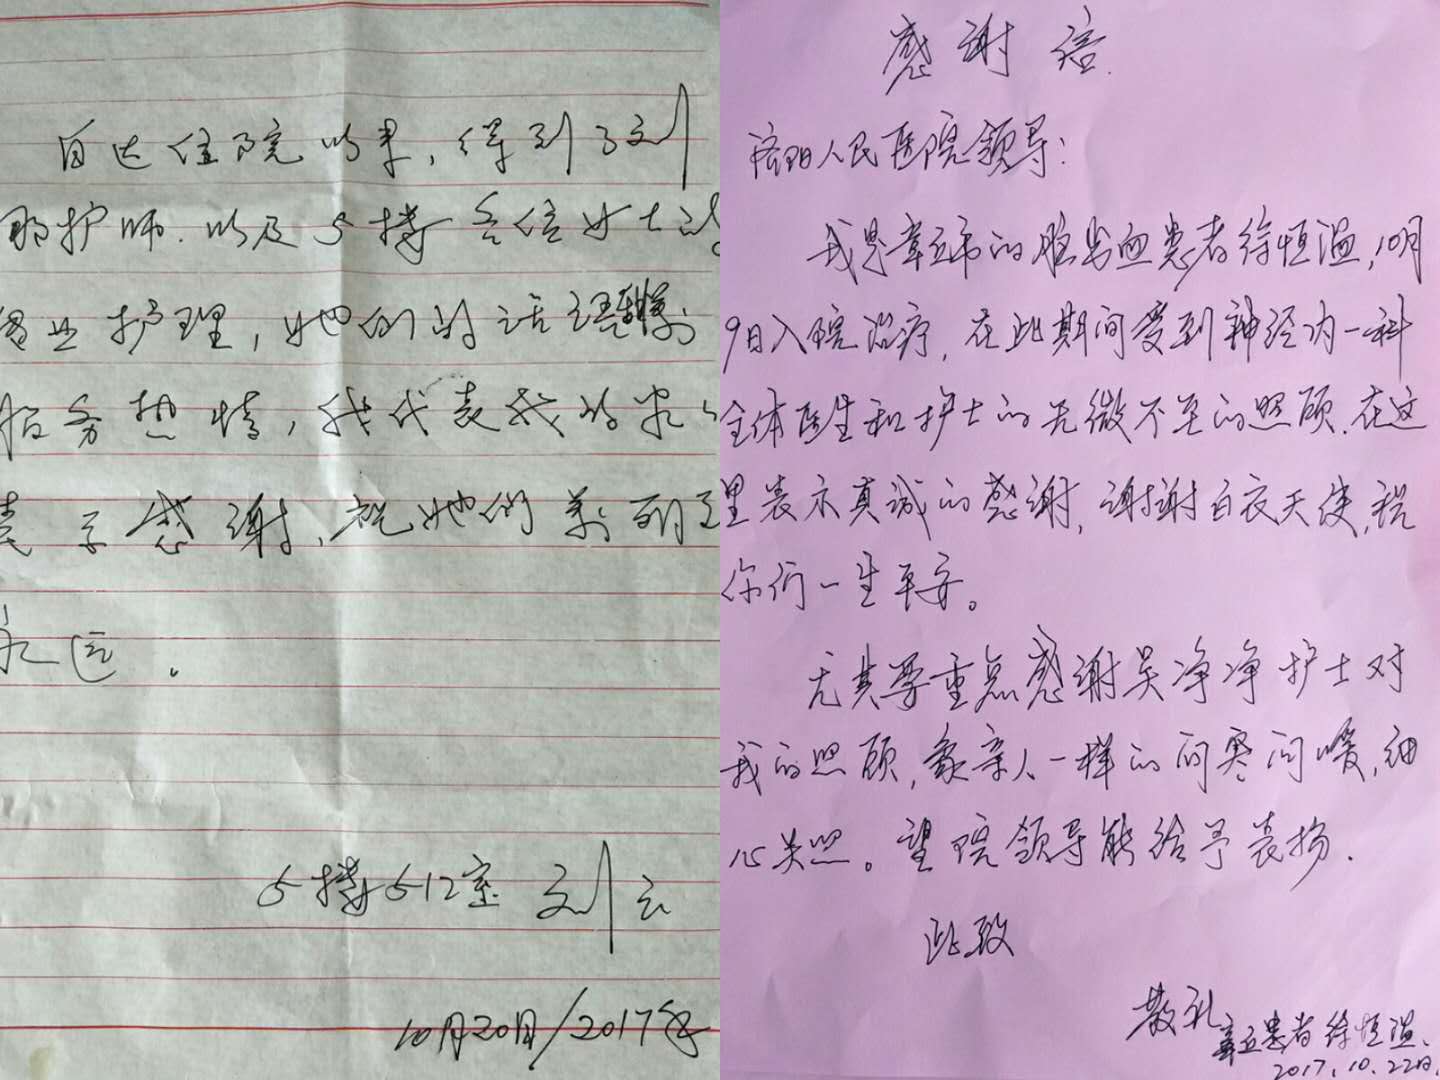 自达住院以来，得到了刘
那护师.以及5楼各位女士的
专业护理，她们的话语亲切
服务热情，我代表我的家人
表示感谢，祝她们美丽到
永远.
5楼512室 刘云
10月20日/2017年
感谢信
洛阳人民医院领导：
我是章丘市的脑出血患者徐恒温，10月
9日入院治疗，在此期间受到神经内一科
全体医生和护士的无微不至的照顾.在这
里表示真诚的感谢，谢谢白衣天使，祝
你们一生平安。
尤其要重点感谢吴净净护士对
我的照顾，象亲人一样的问寒问暖，细
心关照。望院领导能给予表扬.
此致
敬礼
章丘患者徐恒温.
2017.10.22日.